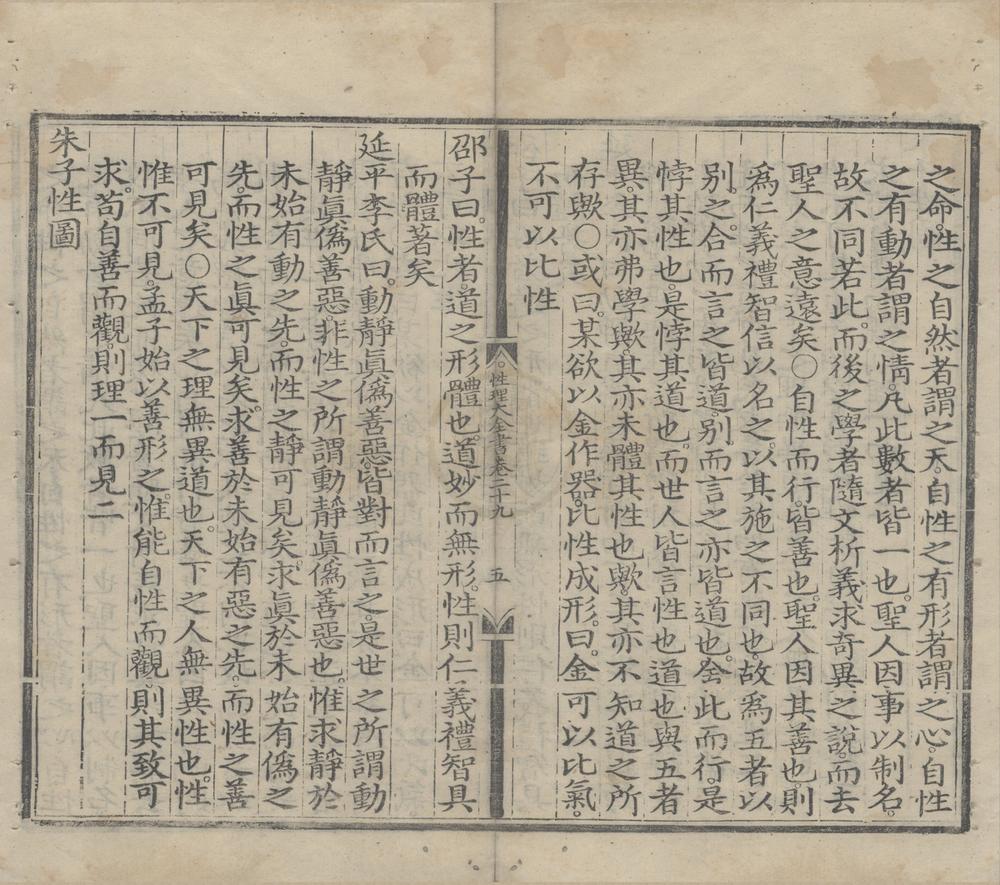 之命。性之自然者謂之天。自性之有形者謂之心。自性
之有動者謂之情。凡此數者皆一也。聖人因事以制名。
故不同若此。而後之學者隨文析義求奇異之說。而去
聖人之意遠矣○自性而行皆善也。聖人因其善也。則
爲仁義禮智信以名之。以其施之不同也。故爲五者以
別之。合而言之皆道。別而言之亦皆道也。舍此而行。是
悖其性也。是悖其道也。而世人皆言性也道也與五者
異。其亦弗學歟。其亦未體其性也歟。其亦不知道之所
存歟○或曰。某欲以金作器。比性成形。曰。金可以比氣。
不可以比性
性理大全書卷二十九
五
邵子曰。性者。道之形體也。道妙而無形。性則仁義禮智具
而體著矣
延平李氏曰。動靜眞僞善惡。皆對而言之。是世之所謂動
靜眞僞善惡。非性之所謂動靜眞僞善惡也。惟求靜於
未始有動之先。而性之靜可見矣。求眞於未始有僞之
先。而性之眞可見矣。求善於未始有惡之先。而性之善
可見矣○天下之理無異道也。天下之人無異性也。性
惟不可見。孟子始以善形之。惟能自性而觀。則其致可
求。苟自善而觀。則理一而見二
朱子性圖